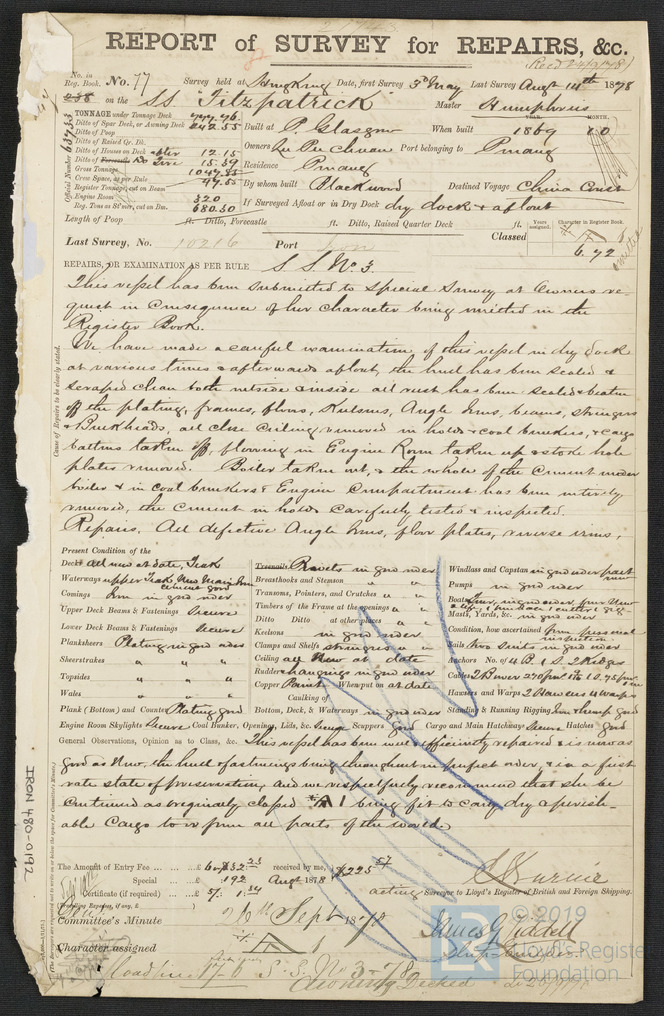 REPORT of SURVEY for REPAIRS, &c.
No. in Reg. Book. No. 77 Survey held at Hong Kong Date, first Survey 3rd May Last Survey Augt 14th 1878
on the S.S. "Fitzpatrick" Master Humphries
TONNAGE under Tonnage Deck
Ditto of Spar Deck, or Awning Deck 242.55
Ditto of Poop
Ditto of Raised Qr. Dk.
Ditto of Houses on Deck 12.15
Ditto of Forecastle 15.59
Gross Tonnage
Crew Space, as per Rule 47.55
Register Tonnage, cut on Beam
Engine Room 320
Reg. Tons as St'mer, cut on Bm. 680.30
Official Number
Built at P. Glasgow When built YEAR 1869 MONTH 10
Owners Port belonging to Pinang
Residence Pinang
By whom built Blackwood Destined Voyage China Coast
If Surveyed Afloat or in Dry Dock dry dock & afloat
Length of Poop ft. Ditto, Forecastle ft. Ditto, Raised Quarter Deck ft.
Years assigned. Character in Register Book.
Last Survey, No. 10216 Port Lon Classed 6.72
REPAIRS, OR EXAMINATION AS PER RULE S.S. No. 3.
This vessel has been submitted to Special Survey at Owners re-
quest in consequence of her character being omitted in the
Register Book.
We have made a careful examination of this vessel in dry dock
at various times & afterwards afloat, the hull has been scaled &
scraped clean both outside & inside all rust has been scaled & beaten
off the plating, frames, floors, Kelsons, Angle Irons, beams, stringers
& Bulkheads, all close Ceiling removed in holds & coal bunkers, & cargo
battens taken off, flooring in Engine Room taken up & stoke hole
plates removed. Boiler taken out, & the whole of the cement under
boiler & in coal bunkers & Engine compartment has been entirely
removed, the cement in holds carefully tested & inspected.
Repairs. All defective Angle Irons, floor plates, reverse irons,
Cause of Repairs to be clearly stated.
Present Condition of the
Decks all new at date, Teak
Waterways upper Teak
Comings Iron in good order
Upper Deck Beams & Fastenings Secure
Lower Deck Beams & Fastenings Secure
Planksheers Plating in good order
Sheerstrakes " " "
Topsides " " "
Wales " " "
Plank (Bottom) and Counter Plating good
Treenails Rivets in good order
Breasthooks and Stemson " "
Transoms, Pointers, and Crutches " "
Timbers of the Frame at the openings " "
Ditto Ditto at other places " "
Keelsons in good order
Clamps and Shelfs stringers " "
Ceiling all New at date
Rudder hangings in good order
Copper Paint When put on at date
Caulking of
Bottom, Deck, & Waterways in good order
Windlass and Capstan in good order part new
Pumps in good order
Boats
Masts, Yards, &c. in good order
Condition, how ascertained from personal inspection
Sails two Suits in good order
Anchors No. of 4 B. 1 S. 2 Kedges
Cables
Hawsers and Warps 2 Hawsers 4 warps
Standing & Running Rigging good
Engine Room Skylights Secure Coal Bunker, Openings, Lids, &c. Secure Scuppers good Cargo and Main Hatchways Secure Hatches good
General Observations, Opinion as to Class, &c. This vessel has been well & efficiently repaired & is now as
good as New, the hull & fastenings being throughout in perfect order, & in a first
rate state of preservation, and we respectfully recommend that she be
continued as originally classed A 1 being fit to carry dry & perish-
able Cargo to & from all parts of the world.
IRON 480-0192
The Amount of Entry Fee received by me,
Special 192 Augt 1878 $225
Certificate (if required)
acting Surveyor to Lloyd's Register of British and Foreign Shipping.
Committee's Minute 20th Sept 1878
James G Liddell
Ship Surveyor
Character assigned A
S.S. No 3-78
Awning Decked
© 2019
Lloyd's Register
Foundation